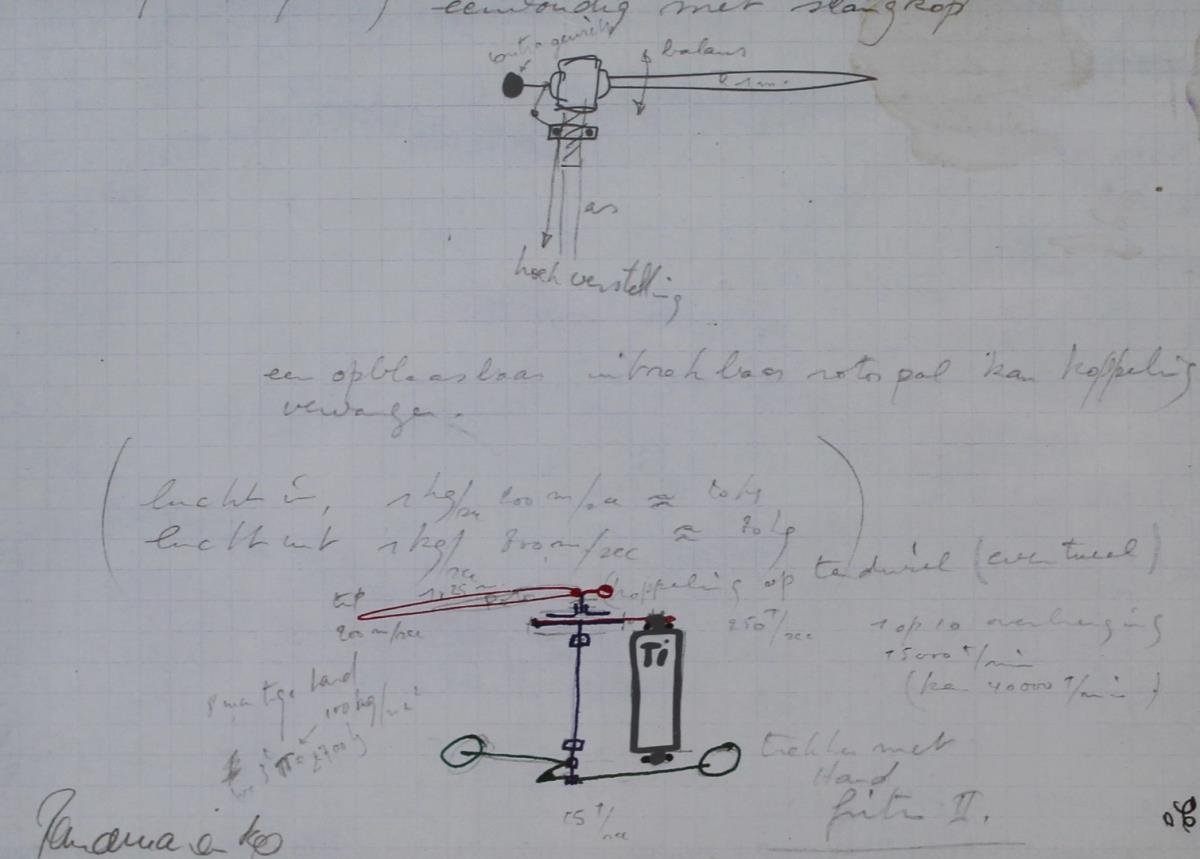 eenvoudig met slangkop
contragewicht
balans
± 1 m.
as
hoekverstelling
een opblaasbaar intrekbaar rotor pal kan koppeling
vervangen.
lucht in, 1 kg/sec 200 m/sec ≈ 20 kg
lucht uit 1 kg/sec 800 m/sec ≈ 80 kg
koppeling op tandwiel (eventueel)
1,25 m
tip
200 m/sec
250 T/sec
1 op 10 overbrenging
15000 T/min
(40000 T/min)
Ti
100 kg/m²
trekker met
Hand
15 T/sec
II.
Panamarenko